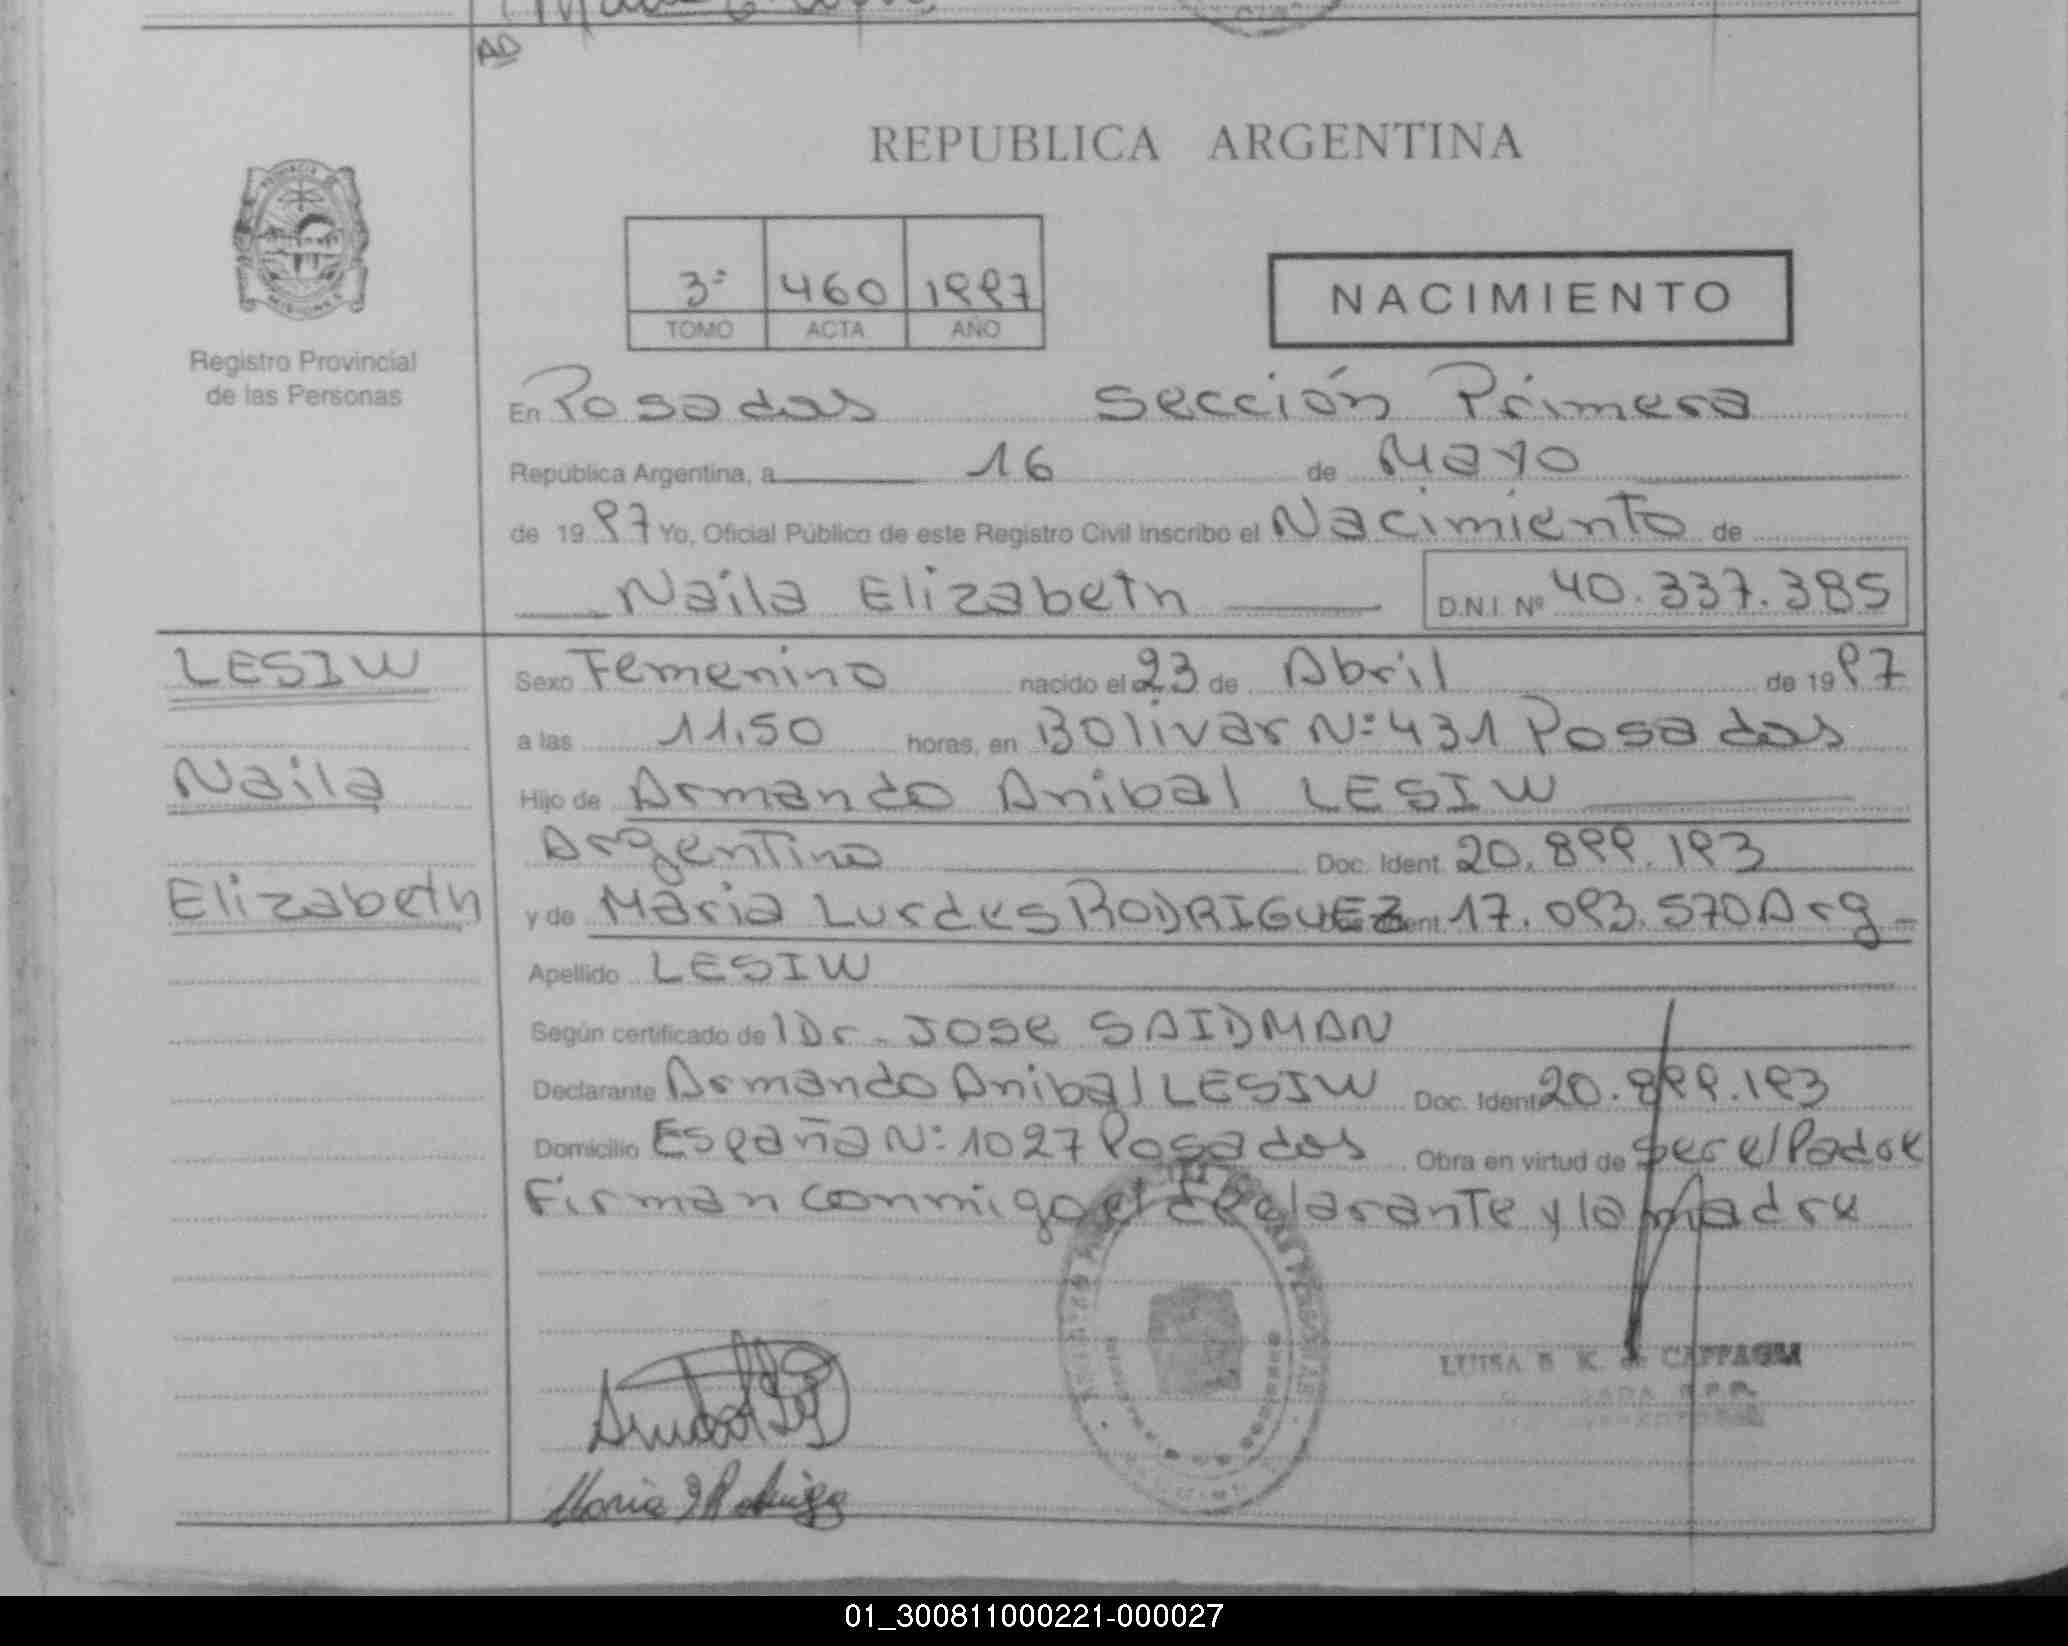 AD
REPUBLICA ARGENTINA
3º 460 1997
TOMO ACTA AÑO
NACIMIENTO
Registro Provincial
de las Personas
En Posadas Sección Primera
República Argentina, a 16 de Mayo
de 1997 Yo, Oficial Público de este Registro Civil Inscribo el Nacimiento de
Naila Elizabeth D.N.I. Nº 40.337.385
LESIW
Naila
Elizabeth
Sexo Femenino nacido el 23 de Abril de 1997
a las 11,50 horas, en Bolivar Nº 431 Posadas
Hijo de Armando Anibal LESIW
Argentino Doc. Ident. 20.899.193
y de Maria Lurdes RODRIGUEZ 17.093.570 Arg
Apellido LESIW
Según certificado de Dr. JOSE SAIDMAN
Declarante Armando Anibal LESIW Doc. Ident 20.899.193
Domicilio España Nº 1027 Posadas Obra en virtud de ser el Padre
Firman conmigo el declarante y la Madre
LUISA B K. de
01_300811000221-000027